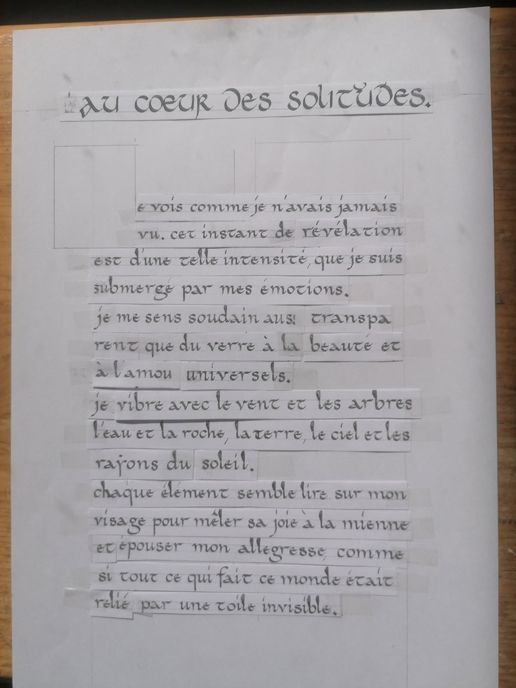 AU COEUR DES SOLITUDES.
e vois comme je n'avais jamais
vu. cet instant de révélation
est d'une telle intensité, que je suis
submergé par mes émotions.
je me sens soudain aussi transpa
rent que du verre à la beauté et
à l'amou universels.
je vibre avec le vent et les arbres
l'eau et la roche, la terre, le ciel et les
rayons du soleil.
chaque élément semble lire sur mon
visage pour mêler sa joie à la mienne
et épouser mon allegresse, comme
si tout ce qui fait ce monde était
relié par une toile invisible.